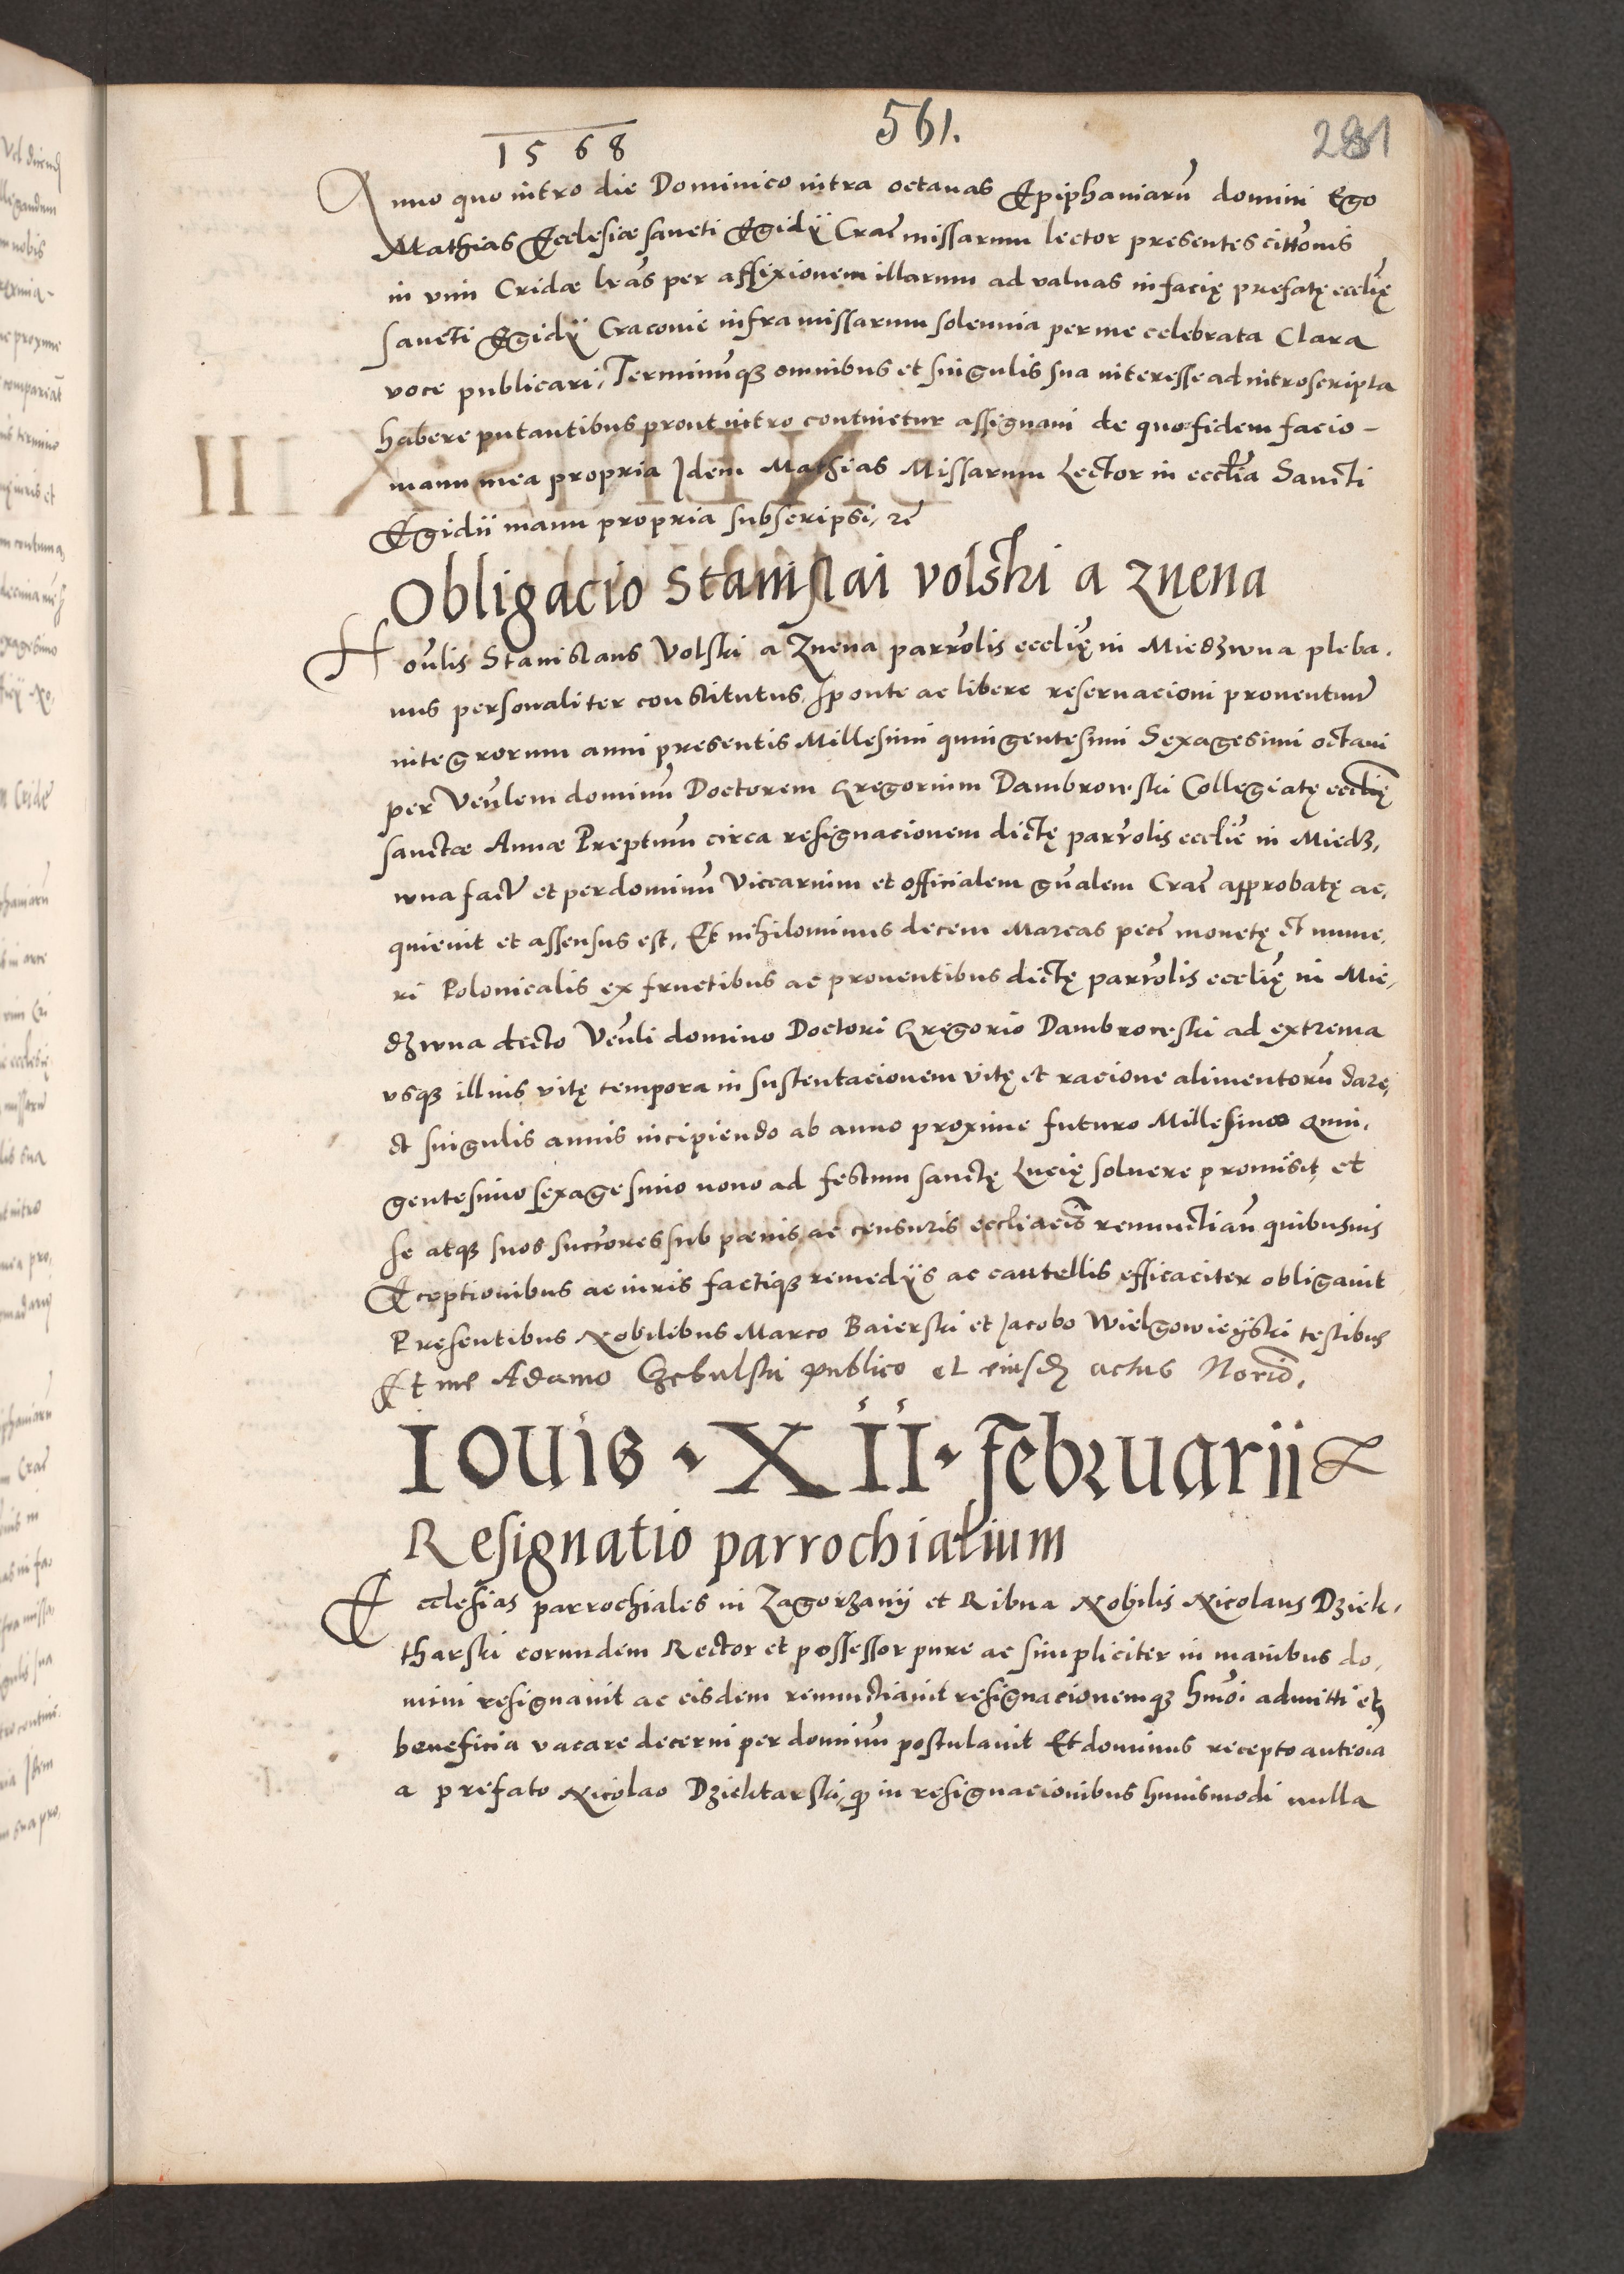 561.
281
1568
Anno quo intro die Dominico intra octavas Epiphaniarũ domini Ego
Mathias Ecclesiæ sancti Egidÿ Crac̃ missarum lector presentes citt̃onis
in vim Cridæ lr̃as per affixionem illarum ad valuas in facię prefatę eccl̃ię
sancti Egidÿ Cracouie infra missarum solennia per me celebrata Clara
voce publicaui, Terminũq₃ omnibus et singulis sua interesse ad introscripta
habere putantibus prout intro continetur assignaui de quo fidem facio –
manu mea propria Idem Mathias Missarum Lector in eccl̃ia Sancti
Egidii manu propria subscripsi, rc̃
Obligacio Stanislai volski a Znena
Hoñlis Stanislaus Volski a Znena parr̃olis eccl̃ię in Miedzwna pleba,
nus personaliter constitutus, sponte ac libere reseruacioni prouentuũ
integrorum anni presentis Millesimi quingentesimi Sexagesimi octaui
per Veñlem dominũ Doctorem Gregorium Dambrowski Collegiatę eccl̃ię
sanctæ Annæ Preptũm circa resignacionem dictę parr̃olis eccl̃ie in Miedz,
wna fact̃ et per dominũ Viccarium et officialem gñalem Crac̃ approbatę ac,
quieuit et assensus est, Et nihilominus decem Marcas pecc̃ monetę et nume,
ri Polonicalis ex fructibus ac prouentibus dictę parr̃olis eccl̃ię in Mie,
dzwna dicto Veñli domino Doctori Gregorio Dambrowski ad extrema
vsq₃ illius vitę tempora in sustentacionem vitę et racione alimentorũ dare,
et singulis annis incipiendo ab anno proxime futuro Millesimo Quin,
gentesimo sexagesimo nono ad festum sanctę Lucię soluere promisit, et
se atq₃ suos succr̃ores sub pœnis ac censuris eccl̃iacis̃ renunctiañ quibusuis
Exceptionibus ac iuris factiq₃ remedÿs ac cautellis efficaciter obligauit
Presentibus Nobilibus Marco Baierski et Jacobo Wielgowieÿski testibus
Et me Adamo Czebulski publico et eiusd̃ actus Norio̅,
IOVIS · XII · februarii
Resignatio parrochialium
Ecclesias parrochiales in Zagorzanÿ et Ribna Nobilis Nicolaus Dziek,
tharski eorundem Rector et possessor pure ac simpliciter in manibus do,
mini resignauit ac eisdem renunctiauit resignacionemq₃ hm̃oi admitti et
beneficia vacare decerni per dominũ postulauit Et dominus recepto
a prefato Nicolao Dziektarski, q̃ in resignacionibus huiusmodi nulla